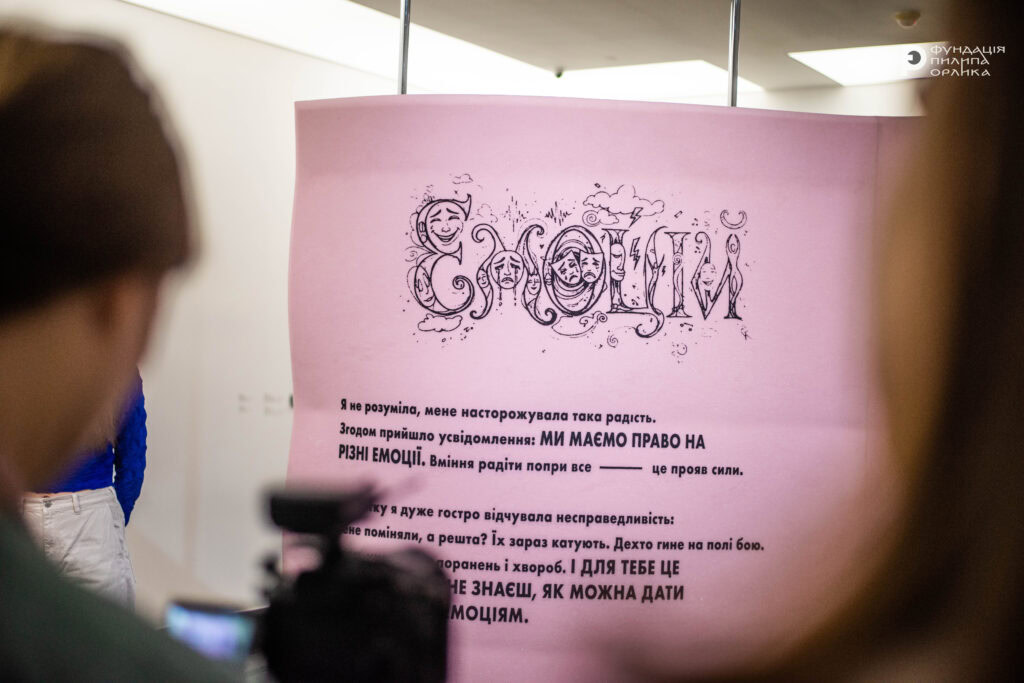 ФУНДАЦІЯ
ПИЛИПА
ОРЛИКА
Емоцій
Я не розуміла, мене насторожувала така радість.
Згодом прийшло усвідомлення: МИ МАЄМО ПРАВО НА
РІЗНІ ЕМОЦІЇ. Вміння радіти попри все —— це прояв сили.
я дуже гостро відчувала несправедливість:
поміняли, а решта? Їх зараз катують. Дехто гине на полі бою.
поранень і хвороб. І ДЛЯ ТЕБЕ ЦЕ
НЕ ЗНАЄШ, ЯК МОЖНА ДАТИ